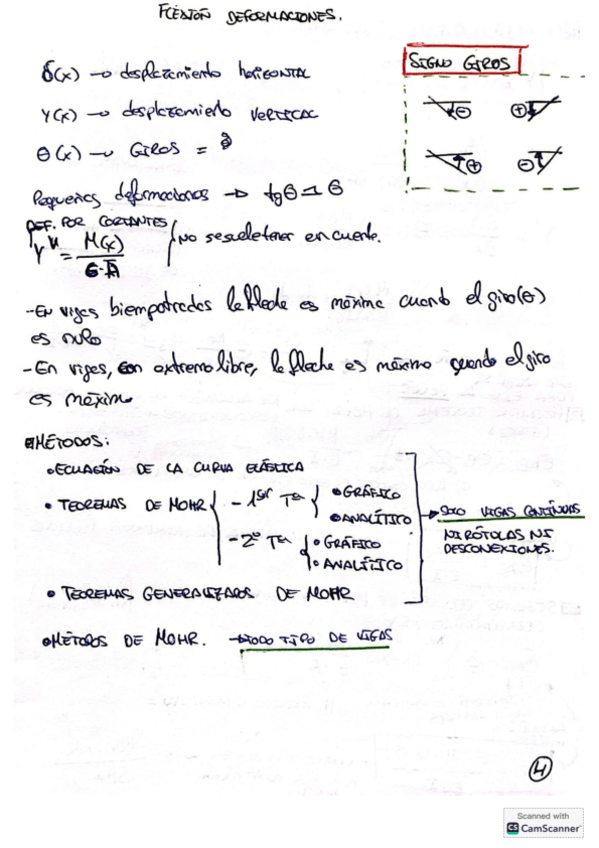 FLEXIÓN DEFORMACIONES.
SIGNO GIROS
δ(x) → desplazamiento horizontal
Y(x) → desplazamiento VERTICAL
θ(x) → GIROS =
⊖ ⊕
⊕ ⊖
Pequeñas deformaciones → tg θ ≃ θ
DEF. POR CORTANTES
y'' = M(x) / No se suele tener en cuenta.
- En vigas biempotradas la flecha es máxima cuando el giro(θ)
es nulo
- En vigas, con extremo libre, la flecha es máximo cuando el giro
es máximo
MÉTODOS:
• ECUACIÓN DE LA CURVA ELÁSTICA
• TEOREMAS DE MOHR { - 1er Ta { • GRÁFICO
• ANALÍTICO
→ SOLO VIGAS CONTINUAS
NI RÓTULAS NI
DESCONEXIONES.
- 2º Ta { • GRÁFICO
• ANALÍTICO
• TEOREMAS GENERALIZADOS DE MOHR
• MÉTODOS DE MOHR. → TODO TIPO DE VIGAS
4
Scanned with
CS CamScanner